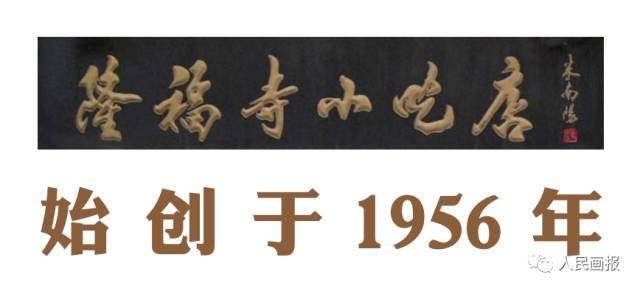 隆福寺小吃店
始创于1956年
人民画报